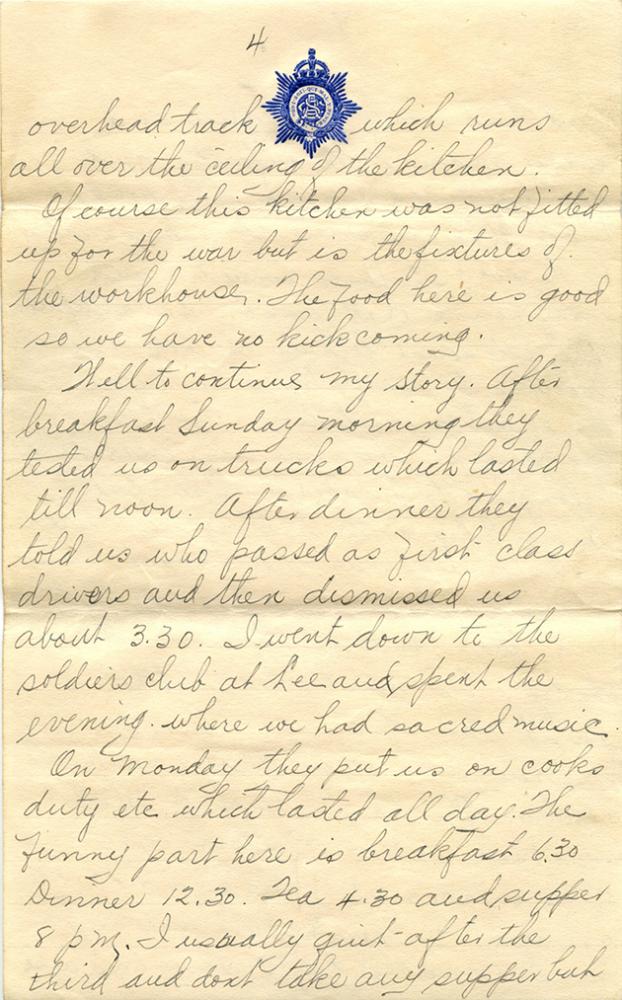 4
overhead track which runs
all over the ceiling of the kitchen.
Of course this kitchen was not fitted
up for the war but is the fixtures of
the workhouse. The food here is good
so we have no kick coming.
Well to continue my story. After
breakfast Sunday morning they
tested us on trucks which lasted
till noon. After dinner they
told us who passed as first class
drivers and then dismissed us
about 3.30. I went down to the
soldiers club at Lee and spent the
evening. where we had sacred music.
On Monday they put us on cooks
duty etc which lasted all day. The
funny part here is breakfast 6.30
Dinner 12.30. Tea 4.30 and supper
8 pm. I usually quit after the
third and dont take any supper but